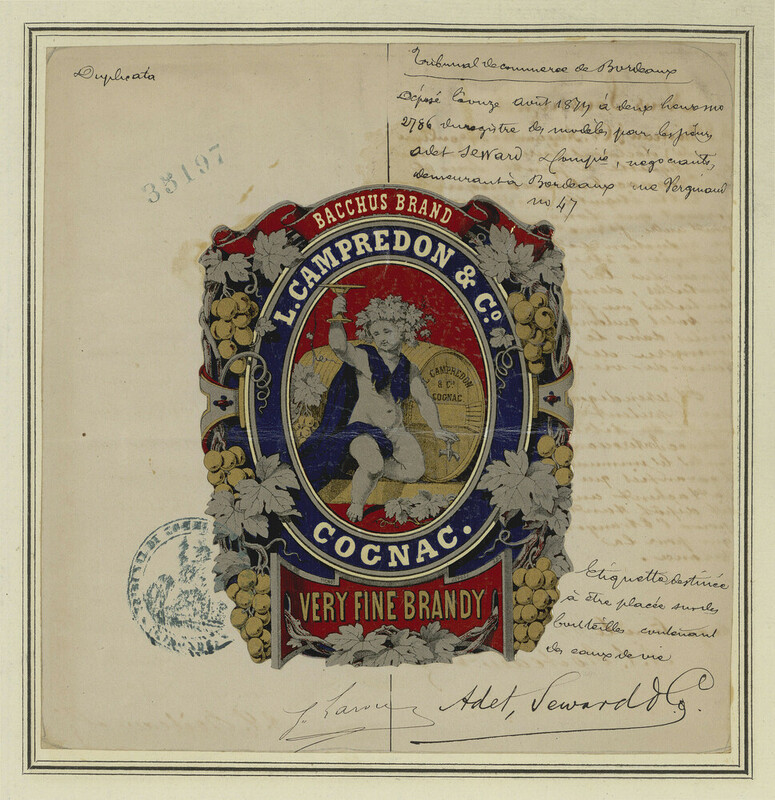 Duplicata
Tribunal de commerce de Bordeaux
Déposé le onze août 1874 à deux heures no
2786 du registre des modèles par les sieurs
Adet Seward & Compie, négociants,
demeurant à Bordeaux rue Vergniaud
no 47
35197
BACCHUS BRAND
L. CAMPREDON & Co.
CAMPREDON
& Co
COGNAC
COGNAC.
VERY FINE BRANDY
Etiquette destinée
à être placée sur les
bouteilles contenant
des eaux de vie
Adet, Seward & Co.